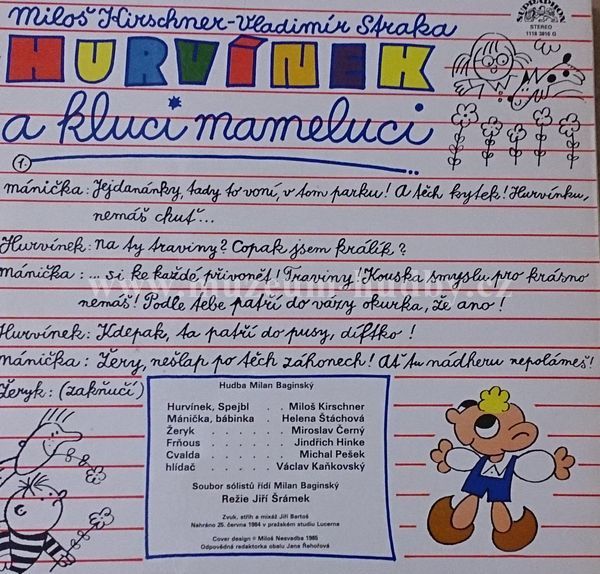 Miloš Kirschner-Vladimír Straka
SUPRAPHON
STEREO
1118 3816 G
HURVÍNEK
a kluci mameluci
1.
Mánička: Jejdanánky, tady to voní, v tom parku! A těch kytek! Hurvínku,
nemáš chuť...
Hurvínek: Na ty traviny? Copak jsem králík?
Mánička: ... si ke každé přivonět! Traviny! Kouska smyslu pro krásno
nemáš! Podle tebe patří do vázy okurka, že ano!
www.muzeumhudby.cz
Hurvínek: Kdepak, ta patří do pusy, díftko!
Mánička: Žery, nešlap po těch záhonech! Ať tu nádheru nepolámeš!
Žeryk: (zakňučí)
Hudba Milan Baginský
Hurvínek, Spejbl . . . Miloš Kirschner
Mánička, bábinka . Helena Štáchová
Žeryk . . . . Miroslav Černý
Frňous . . . . Jindřich Hinke
Cvalda . . . . Michal Pešek
hlídač . . . . Václav Kaňkovský
Soubor sólistů řídí Milan Baginský
Režie Jiří Šrámek
Zvuk, střih a mixáž Jiří Bartoš
Nahráno 25. června 1984 v pražském studiu Lucerna
Cover design © Miloš Nesvadba 1985
Odpovědná redaktorka obalu Jana Řehořová